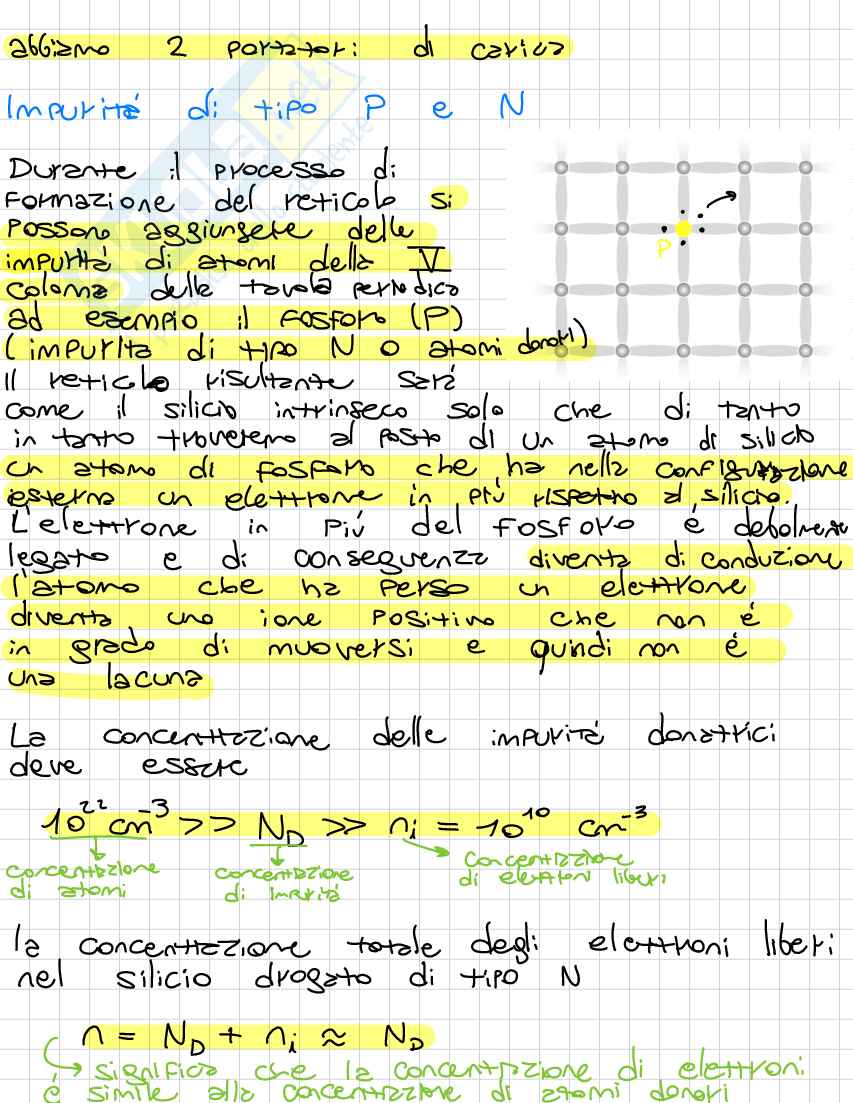 abbiamo 2 portatori di carica
Impurità di tipo P e N
Durante il processo di
formazione del reticolo si
possono aggiungere delle
impurità di atomi della V
colonna della tavola periodica
ad esempio il fosforo (P)
(impurità di tipo N o atomi donori)
Il reticolo risultante sarà
come il silicio intrinseco solo che di tanto
in tanto troveremo al posto di un atomo di silicio
un atomo di fosforo che ha nella configurazione
esterna un elettrone in più rispetto al silicio.
L'elettrone in più del fosforo è debolmente
legato e di conseguenza diventa di conduzione
l'atomo che ha perso un elettrone
diventa uno ione positivo che non è
in grado di muoversi e quindi non è
una lacuna
P
La concentrazione delle impurità donatrici
deve essere
10²² cm⁻³ >> N_D >> n_i = 10¹⁰ cm⁻³
concentrazione di atomi
concentrazione di impurità
concentrazione di elettroni liberi
la concentrazione totale degli elettroni liberi
nel silicio drogato di tipo N
n = N_D + n_i ≈ N_D
significa che la concentrazione di elettroni
è simile alla concentrazione di atomi donori